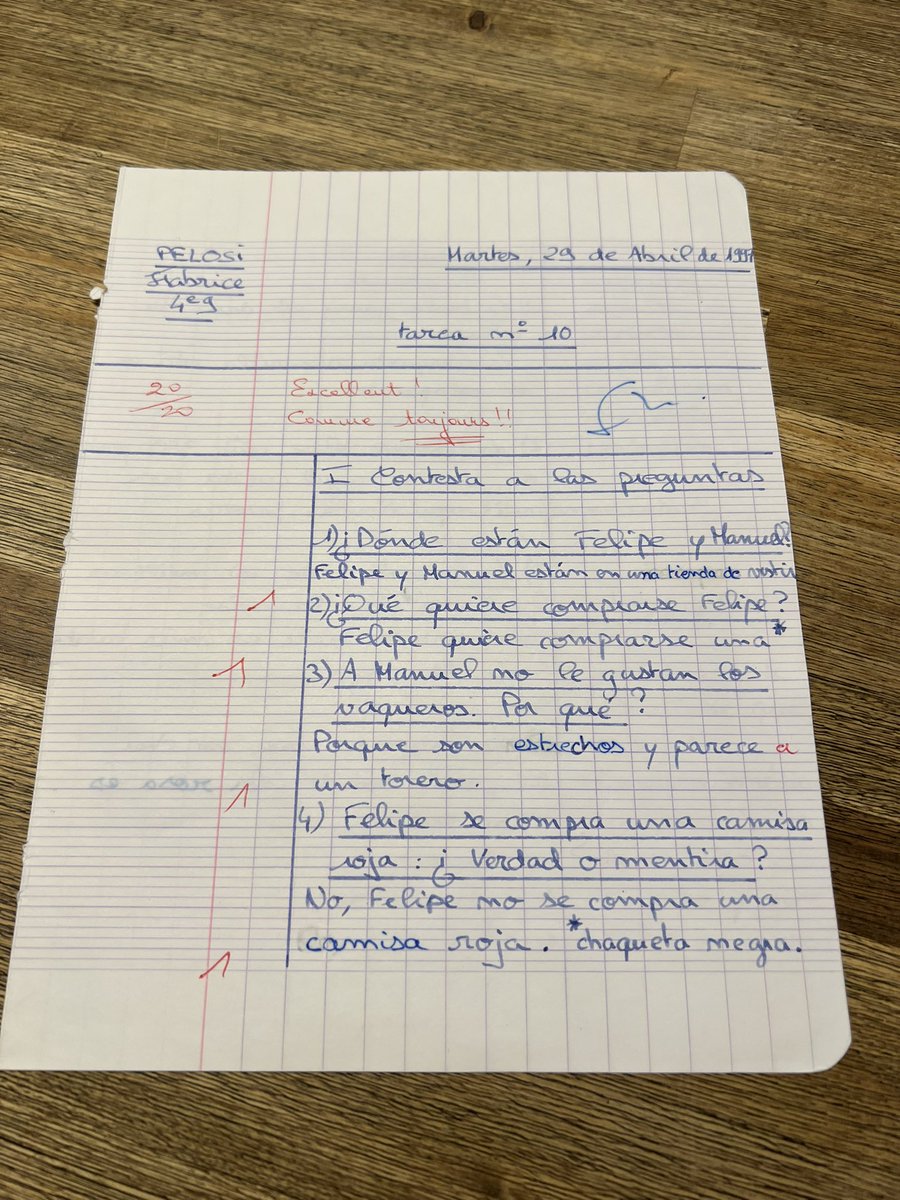 PELOSI
Fabrice
4e9
Martes, 29 de Abril de 1997
tarea nº 10
20/20
Excellent !
Comme toujours !!
I Contesta a las preguntas
1) ¿Dónde están Felipe y Manuel?
Felipe y Manuel están en una tienda de vestir
1
2) ¿Qué quiere comprarse Felipe?
Felipe quiere comprarse una *
1
3) A Manuel no le gustan los
vaqueros. Por qué ?
Porque son estrechos y parece a
un torero.
1
4) Felipe se compra una camisa
roja : ¿ Verdad o mentira ?
No, Felipe no se compra una
camisa roja. *chaqueta negra.
1